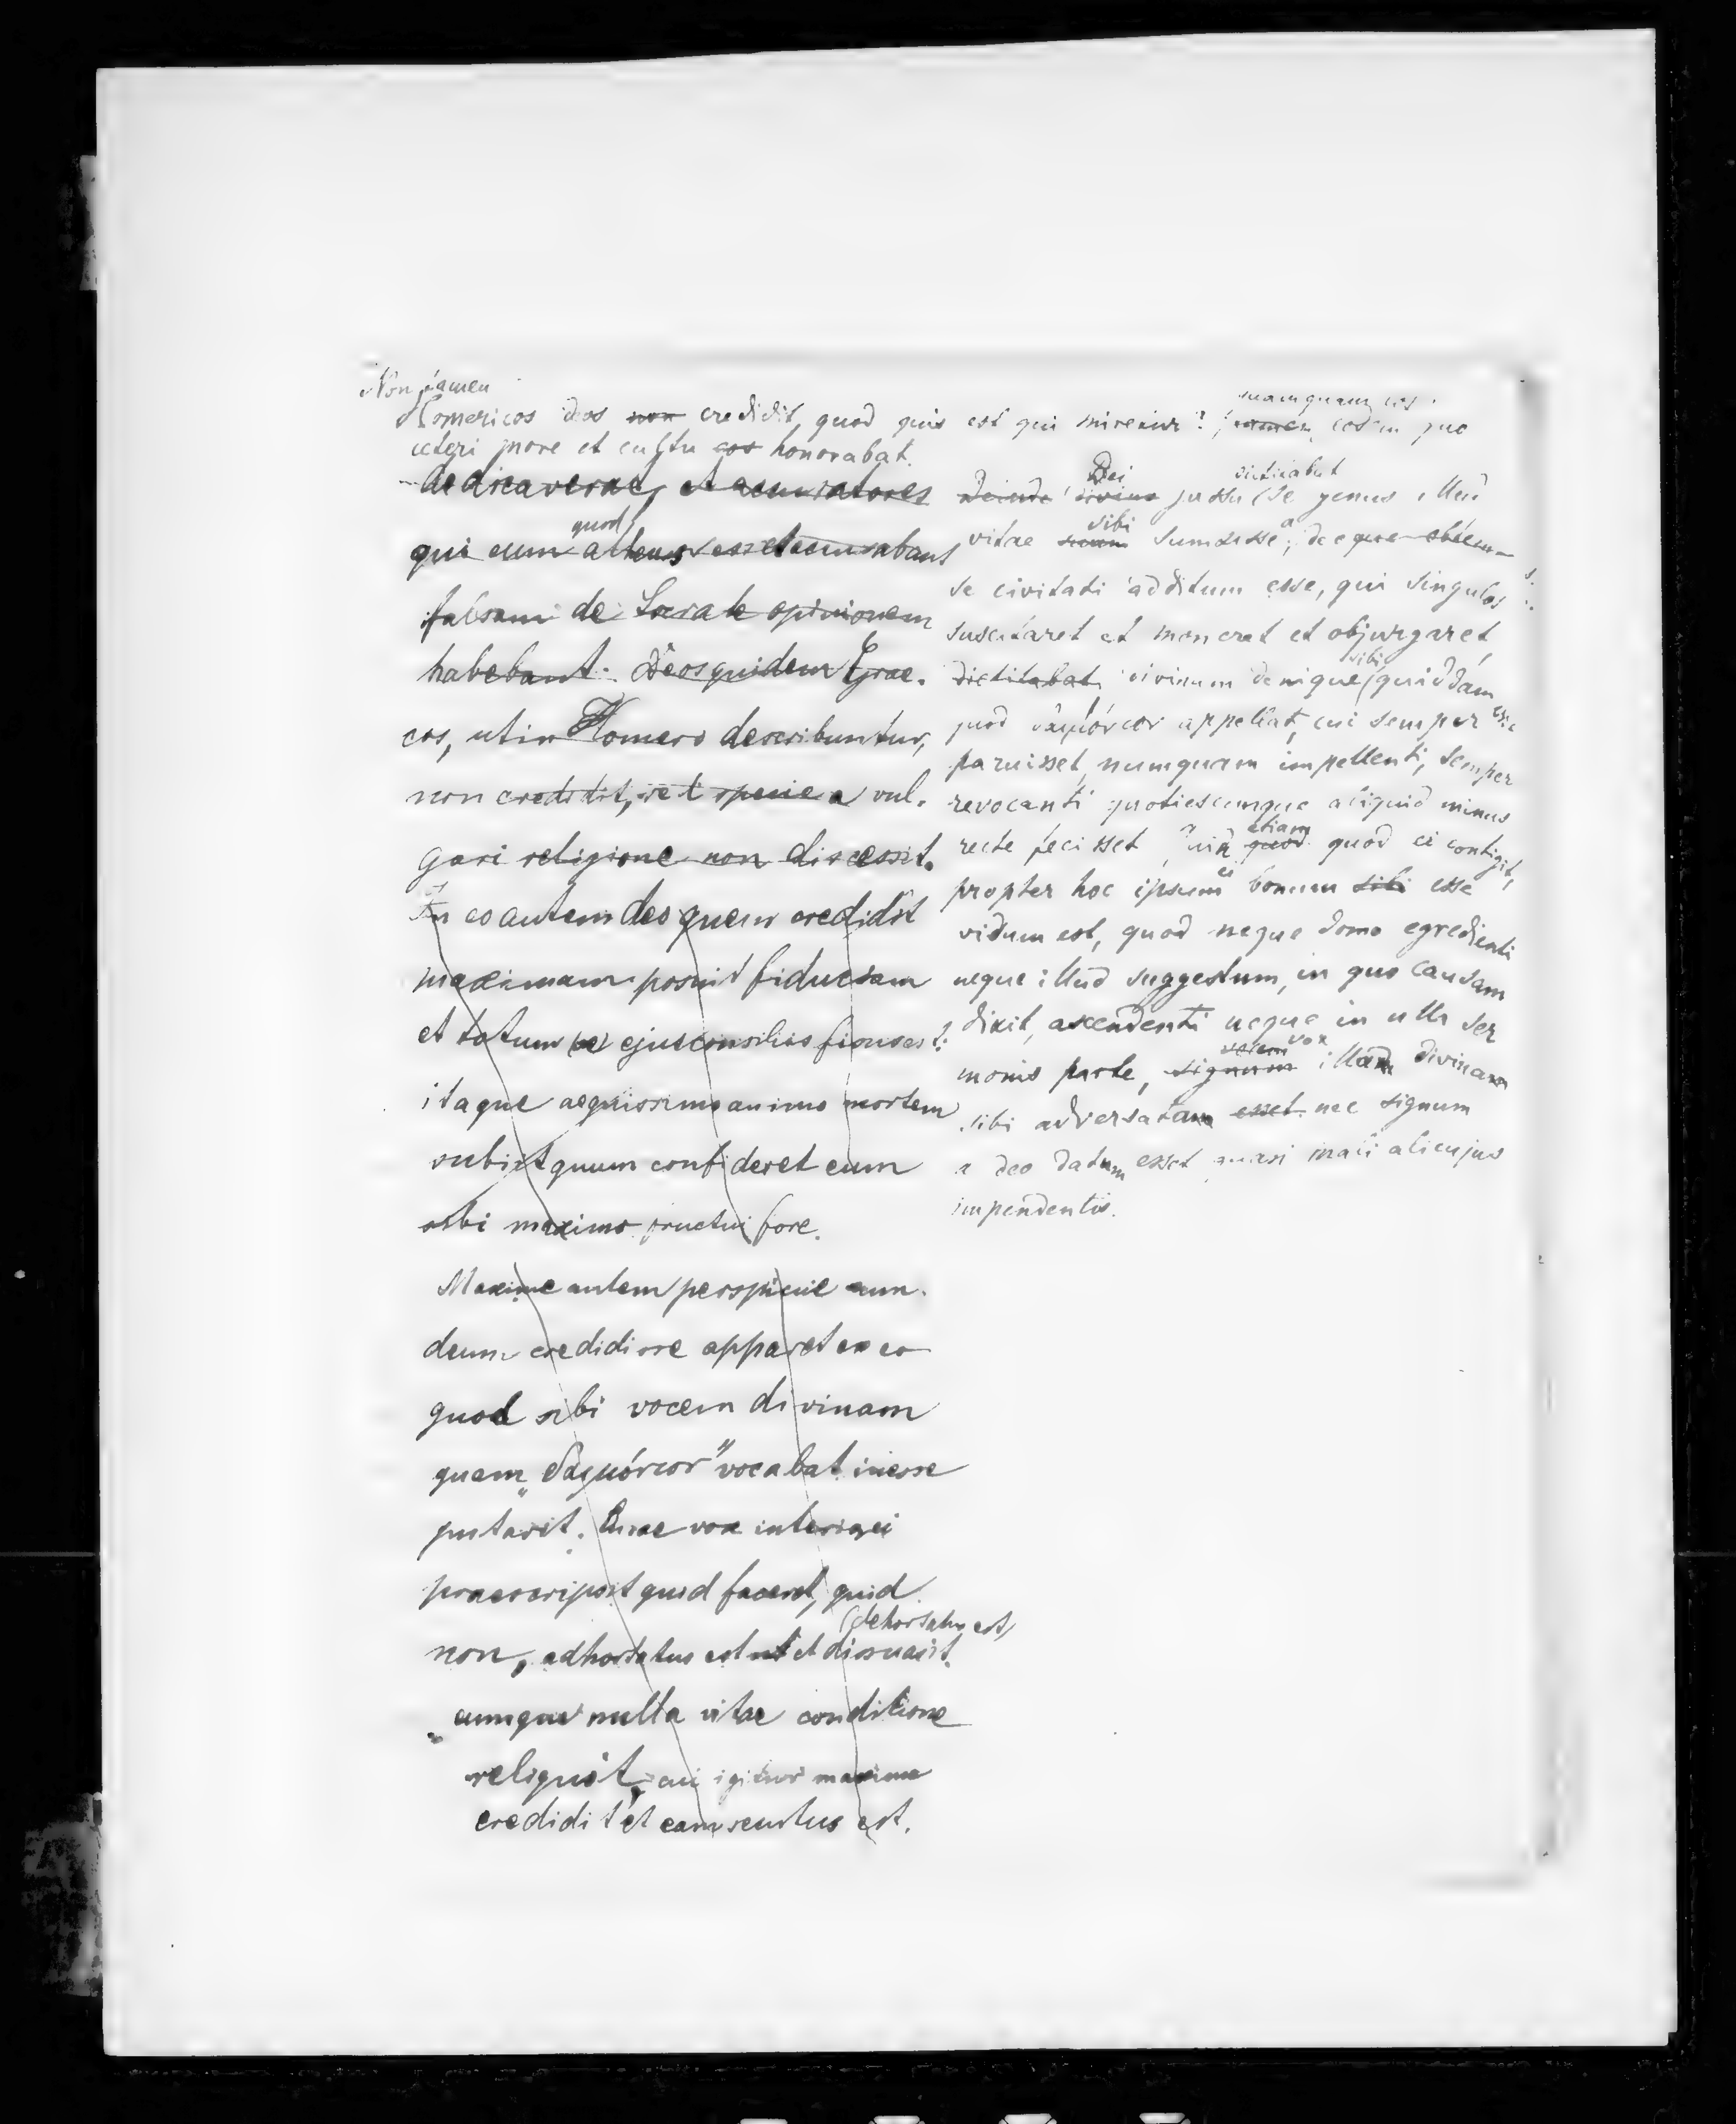 Non tamen
Homericos deos non credidit, quod quis est qui miretur? tamen eodem quo
quamquam eos
ceteri more et cultu eos honorabat.
dedicaverat, et accusatores
qui eum quod atheus esset accusabant
falsam de Socrate opinionem
habebant. Deos quidem Grae-
cos, ut in Homero describuntur,
non credidit, set specie a vul-
gari religione non discessit.
In eo autem deo quem credidit
maximam posuit fiduciam
et totum se ejus consiliis fisus est:
itaque aequissimo animo mortem
subiit quum confideret eum
sibi maximo fructui fore.
Maxime autem perspicue eum
deum credidisse apparet ex eo
quod sibi vocem divinam
quam „δαιμόνιον" vocabat inesse
putarit. Quae vox interior ei
praescripsit quid faceret, quid
non, adhortatus est et dissuasit.
(dehortatus est)
eumque nulla vitae conditione
reliquit, cui igitur maxime
credidit et eam secutus est.
Deinde divino jussu se genus illud
Dei dictitabat
vitae suum sumsisse, deeque obtem-
sibi a
se civitati additum esse, qui singulos
suscitaret et moneret et objurgaret,
dictitabat, divinum denique sibi quiddam
quod δαιμόνιον appellat, cui semper
paruisset, numquam impellenti, semper
revocanti quotiescumque aliquid minus
recte fecisset. Quin etiam quod quod ei contigit,
propter hoc ipsum ei bonum sibi esse
visum est, quod neque domo egredienti
neque illud suggestum, in quo causam
dixit, ascendenti neque in ulla ser
monis parte, signum vocem vox illam divinam
sibi adversatam esset nec signum
a deo datum esset quasi mali alicujus
impendentis.